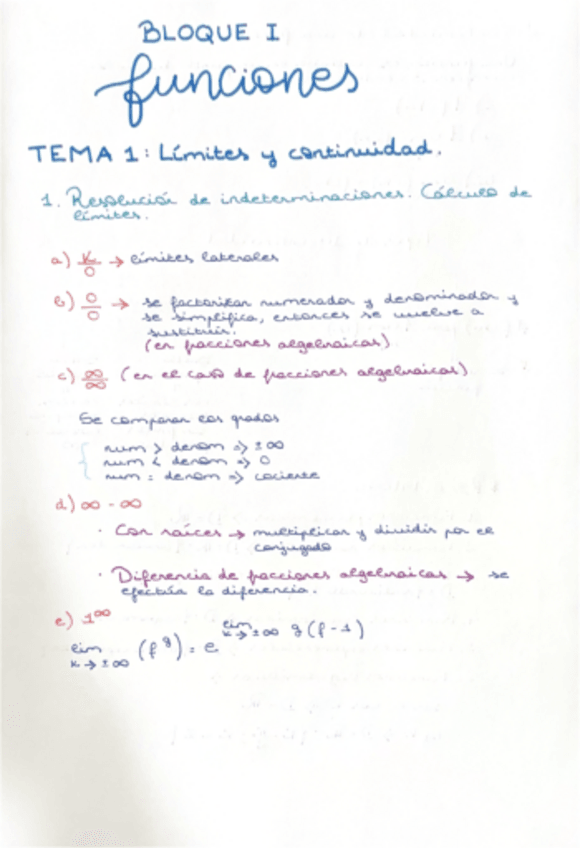 BLOQUE I
funciones
TEMA 1: Límites y continuidad.
1. Resolución de indeterminaciones. Cálculo de
límites.
a) K/0 → límites laterales
b) 0/0 → se factorizan numerador y denominador y
se simplifica, entonces se vuelve a
sustituir.
(en fracciones algebraicas)
c) ∞/∞ (en el caso de fracciones algebraicas)
Se comparan los grados
num > denom => ±∞
num < denom => 0
num = denom => cociente
d) ∞ - ∞
· Con raíces → multiplicar y dividir por el
conjugado
· Diferencia de fracciones algebraicas → se
efectúa la diferencia.
e) 1^∞
lim x→±∞ (f^g) = e^(lim x→±∞ g(f-1))